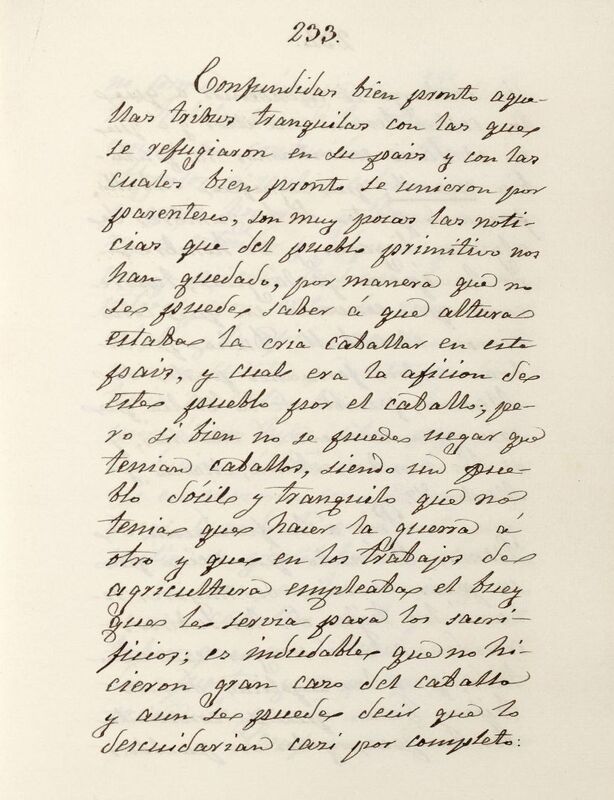 233.
Confundidas bien pronto aque-
llas tribus tranquilas con las que
se refugiaron en su pais y con las
cuales bien pronto se unieron por
parentesco, son muy pocas las noti-
cias que del pueblo primitivo nos
han quedado, por manera que no
se puede saber á que altura
estaba la cria caballar en este
pais, y cual era la aficion de
este pueblo por el caballo; pe-
ro si bien no se puede negar que
tenian caballos, siendo un pue-
blo dócil y tranquilo que no
tenia que hacer la guerra á
otro y que en los trabajos de
agricultura empleaba el buey
que le servia para los sacri-
ficios; es indudable que no hi-
cieron gran cazo del caballo
y aun se puede decir que lo
descuidarian cazi por completo.